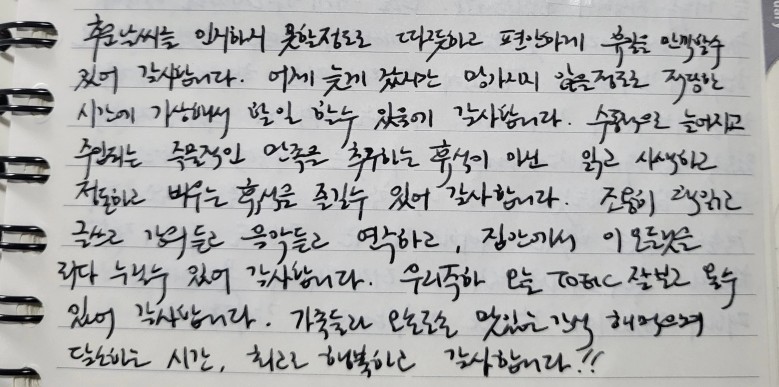 추운날씨를 인지하지 못할정도로 따뜻하고 편안하게 휴일을 만끽할수
있어 감사합니다. 어제 늦게 잤지만 망가지지 않을정도로 적당한
시간에 기상해서 할일 할수 있음에 감사합니다. 수동적으로 늘어지고
주입되는 즉물적인 만족을 추구하는 휴식이 아닌 읽고 사색하고
정돈하고 배우는 휴식을 즐길수 있어 감사합니다. 조용히 책읽고
글쓰고 강의듣고 음악듣고 연주하고, 집안에서 이 모든것을
다 누릴수 있어 감사합니다. 우리 오늘 TOEIC 잘보고 올수
있어 감사합니다. 가족들과 오손도손 맛있는 간식 해먹으며
담소하는 시간, 최고로 행복하고 감사합니다!!